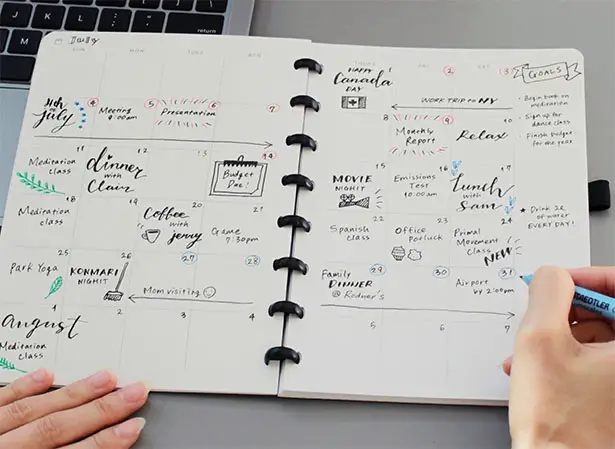 SUN MON TUES
4 5 6 7
4th
of
July
Meeting
9:00am
Presentation
12 13 14
Meditation
class
dinner
with
Clair
Budget
Due!
18 19 20 21
Meditation
class
Coffee
with
Jerry
Game
7:30pm
25 26 27 28
Park Yoga
KONMARI
NIGHT
Mom visiting
2 3 4
August
Meditation
class
2 3
HAPPY
Canada
DAY
WORK TRIP to NY
8 9 10
Monthly
Report
Relax
15 16 17
MOVIE
NIGHT
Emissions
Test
10:00am
Lunch
with
Sam
22 23 24
Spanish
class
Office
Potluck
Primal
Movement
class
NEW
29 30 31
Family
DINNER
@ Rodner's
Airport
by 2:00pm
5 6 7
GOALS
Begin back on
meditation
Sign up for
dance class
Finish budget
for the year
★ Drink 2L
of water
EVERY DAY!
STAEDTLER
return